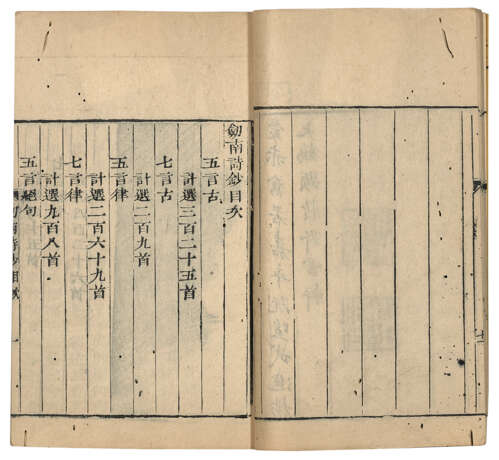 劒南詩鈔目次
五言古
計選三百二十五首
七言古
計選二百九首
五言律
計選二百六十九首
七言律
計選九百八首
五言絕句